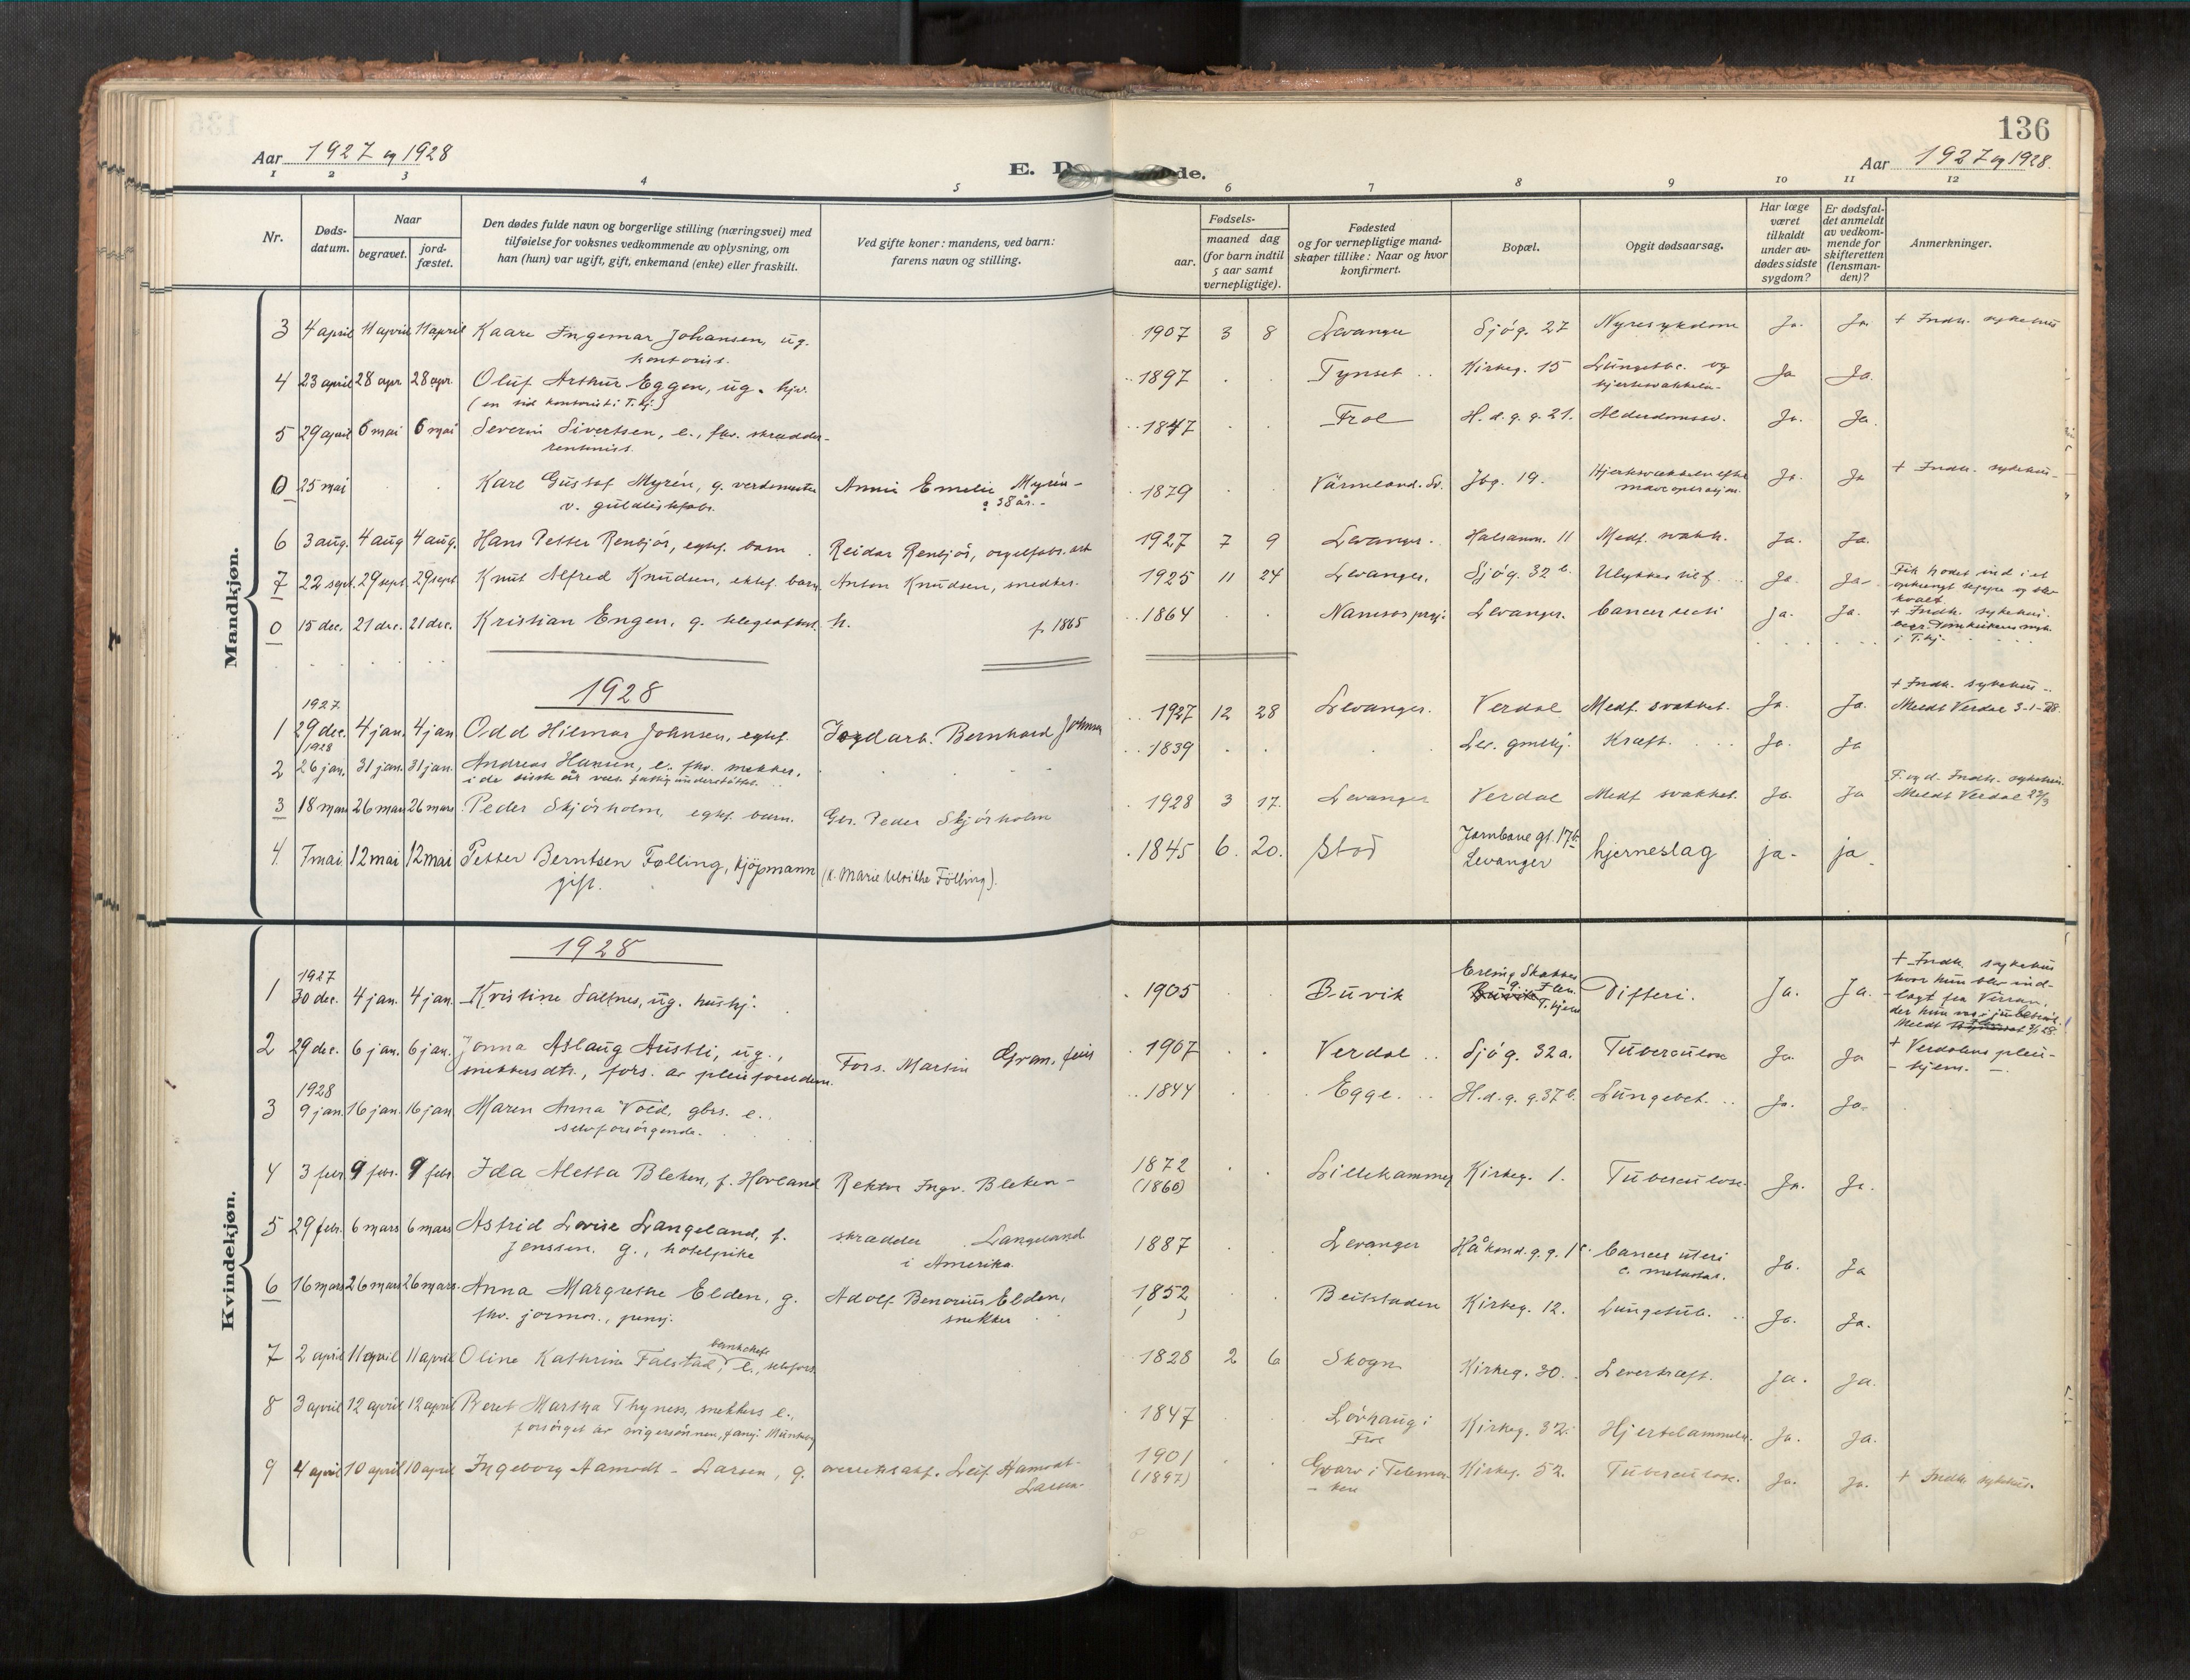 136
Aar 1927 og 1928
E. D de.
Aar 1927 og 1928.
1 2 3 4 5 6 7 8 9 10 11 12
Nr.
Døds-
datum.
Naar
begravet.
jord-
fæstet.
Den dødes fulde navn og borgerlige stilling (næringsvei) med
tilføielse for voksnes vedkommende av oplysning, om
han (hun) var ugift, gift, enkemand (enke) eller fraskilt.
Ved gifte koner: mandens, ved barn:
farens navn og stilling.
Fødsels-
aar.
maaned dag
(for barn indtil
5 aar samt
vernepligtige).
Fødested
og for vernepligtige mand-
skaper tillike: Naar og hvor
konfirmert.
Bopæl.
Opgit dødsaarsag.
Har læge
været
tilkaldt
under av-
dødes sidste
sygdom?
Er dødsfal-
det anmeldt
av vedkom-
mende for
skifteretten
(lensman-
den)?
Anmerkninger.
Mandkjøn.
3 4 april 11 april 11 april Kaare Ingemar Johansen, ug. 1907 3 8 Levanger Sjøg. 27 Nyresykdom Ja. Ja. + Indh. sykehus
kontorist.
4 23 april 28 apr 28 apr. Oluf Arthur Eggen, ug. 1897 Tynset Kirkeg. 15 Lungetbc. og Ja Ja.
5 29 april 6 mai 6 mai Severin Sivertsen, e., fhv. skrædder- 1847 Frol H. d. g. g. 21. Alderdomssv. Ja. Ja.
rentenist.
0 25 mai Karl Gustaf Myrén, g. Emelie Myrén - 1879 Värmland. Sv. Jbg. 19. Ja. Ja + Indh. sykehus-
38 år. -
6 3 aug. 4 aug 4 aug. Hans Petter Renbjør, egtef. barn Reidar Renbjør, 1927 7 9 Levanger. Halsanv. 11 Medf. svakh. Ja. Ja.
7 22 sept. 29 sept. 29 sept Knut Alfred Knudsen, ektef. barn Anton Knudsen, snedker. 1925 11 24 Levanger. Sjøg. 32 b. Ulykkestilf. Ja. Ja- Fik hodet ind i et
kvalt
0 15 dec. 21 dec. 21 dec. Kristian Engen, g. f. 1865 1864 Levanger. Cancer recti Ja. Ja. + Indh. sykehus.
1928
1 1927
29 dec. 4 jan. 4 jan Odd Hilmar Johnsen, egtef. Bernhard Johnsen 1927 12 28 Levanger. Verdal Medf. svakhet. Ja. Ja. + Indh. sykehus -
Meldt Verdal 3-1-28.
2 1928
26 jan. 31 jan. 31 jan. Andreas Hansen, e. fhv. snekker, 1839 Lev. gmlhj. Kræft. Ja. Ja
3 18 mars 26 mars 26 mars Peder Skjørholm, egtef. barn. Gbr. Peder Skjørholm 1928 3 17. Levanger Verdal Medf. svakhet. Ja. Ja F. og d. Indh. sykehus.
Meldt Verdal 22/3
4. 7 mai 12 mai 12 mai Petter Berntsen Følling, kjøpmann (k. Marie Ulrikke Følling). 1845 6. 20. Stod Jarnbane gt. 17b. hjerneslag ja- ja.
gift. Levanger
Kvindekjøn.
1928
1 1927
30 dec. 4 jan. 4 jan. Kristine Saltnes, ug. hushj. 1905 Buvik Erling Skakkes Difteri. Ja. Ja. + Indh. sykehus
hvor hun blev ind-
lagt fra Verran,
2 29 dec. 6 jan. 6 jan. Jonna Aslaug Austli, ug., Fors. Martin Gran, 1907 Verdal Sjøg. 32a. Tuberculose Ja. Ja + Verdalens plei-
snekkersdtr., fors. av pleieforeldern. - hjem. -
3 1928
9 jan. 16 jan. 16 jan Maren Anna Vold, gbrs. e. 1844 Egge. H. d. g. g. 37 b. Lungebet. Ja. Ja.
selvforsørgende.
4 3 febr 9 febr. 9 febr Ida Aletta Bleken, f. Hovland Rektor Ingv. Bleken - 1872 Lillehammer Kirkeg. 1. Tuberculose. Ja. Ja.
(1866)
5 29 febr. 6 mars 6 mars Astrid Lovise Langeland, f. skrædder Langeland 1887 Levanger Håkond. g. g. 1c. Cancer uteri Ja. Ja
Jenssen. g., hotelpike i Amerika. c. metastas.
6 16 mars 26 mars 26 mars. Anna Margrethe Elden, g. Adolf Benonius Elden, 1852 Beitstaden Kirkeg. 12. Lungetub. Ja. Ja.
fhv. jormor., pensj. snekker
7 2 april 11 april 11 april Oline Kathrine Falstad, e., selvfors. 1828 2 6 Skogn Kirkeg. 30. Leverkræft. Ja. Ja.
8 3 april 12 april 12 april Beret Martha Thynes, snekkers e., 1847 Løvhaug i Kirkeg. 32. Hjertelammelse. Ja. Ja.
forsørget av svigersønnen, Frol
9 4 april 10 april 10 april Ingeborg Aamodt - Larsen, g. Leif Aamodt- 1901 Gvarv i Telemar- Kirkeg. 52. Tuberculose. Ja. Ja. + Indh. sykehus.
Larsen. (1897) - ken